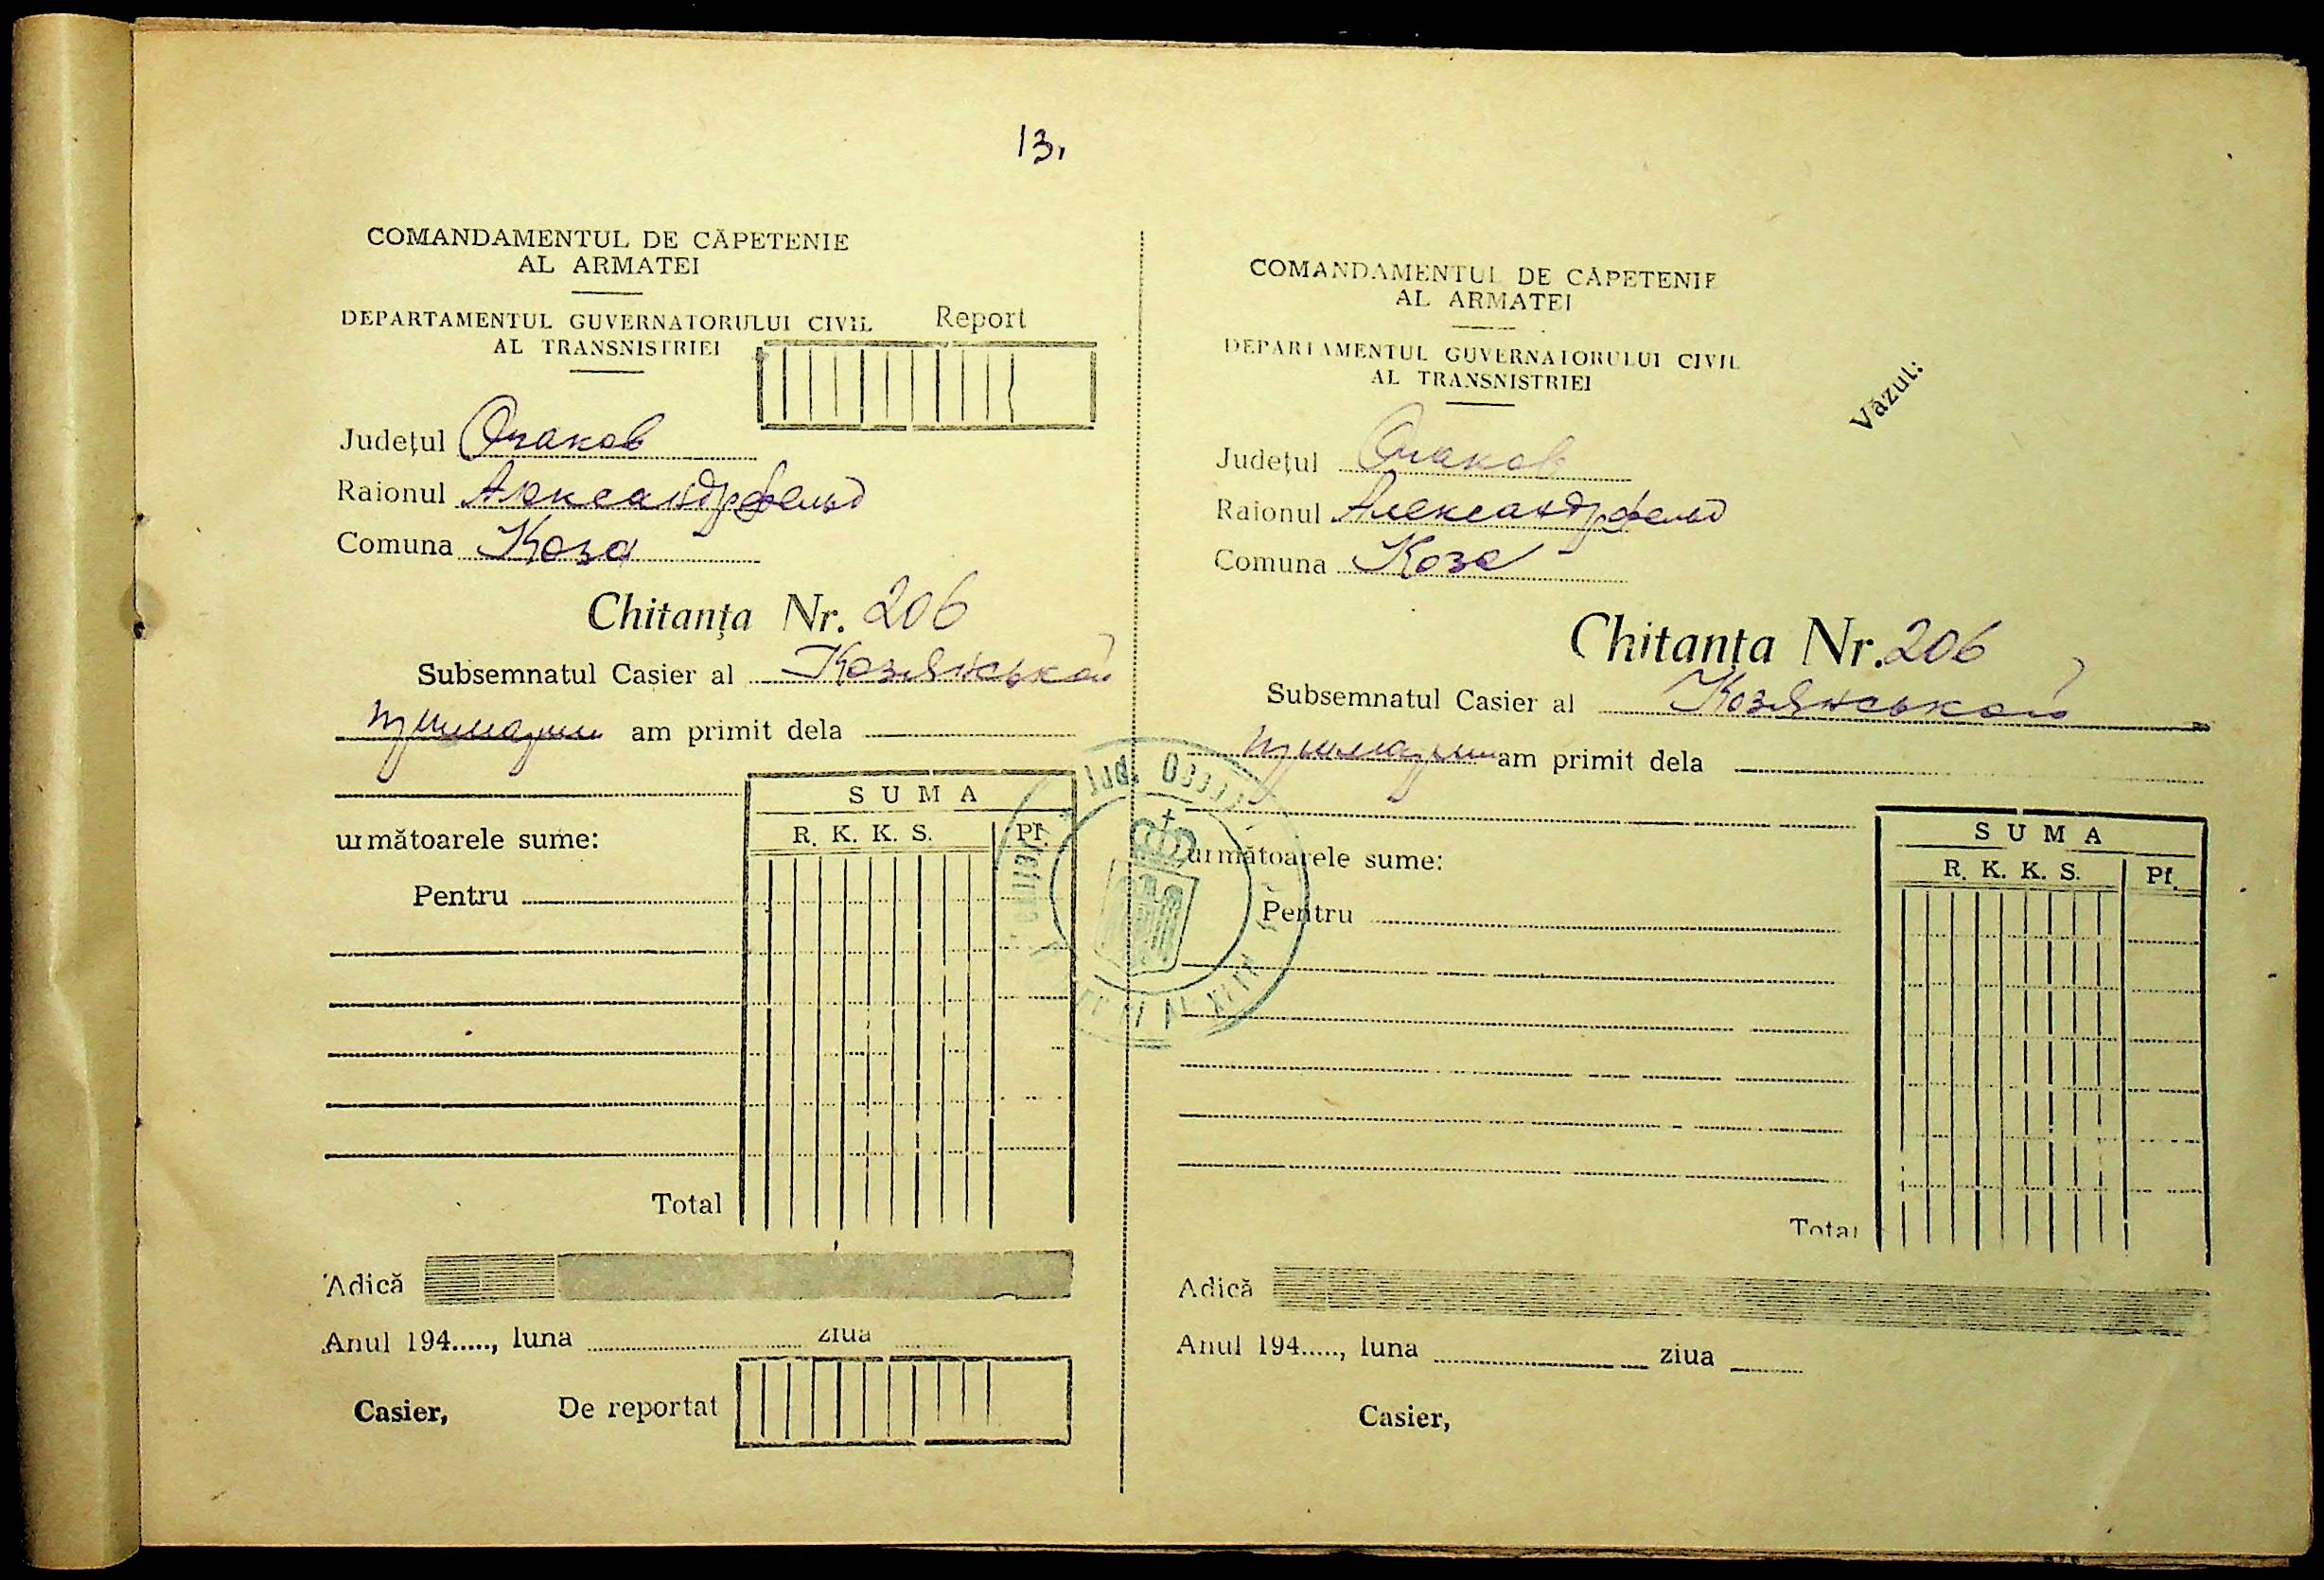 13,
COMANDAMENTUL DE CĂPETENIE
AL ARMATEI
DEPARTAMENTUL GUVERNATORULUI CIVIL
AL TRANSNISTRIEI
Report
Județul Очаков
Raionul Александрфельд
Comuna Коза
Chitanța Nr. 206
Subsemnatul Casier al Козянськой
примарии am primit dela
SUMA
R. K. K. S. Pf.
următoarele sume:
Pentru
Total
Adică
Anul 194....., luna ziua
Casier, De reportat
COMANDAMENTUL DE CĂPETENIE
AL ARMATEI
DEPARTAMENTUL GUVERNATORULUI CIVIL
AL TRANSNISTRIEI
Văzut:
Județul Очаков
Raionul Александрфельд
Comuna Коза
Chitanța Nr. 206
Subsemnatul Casier al Козянськой
примарии am primit dela
SUMA
R. K. K. S. Pf.
următoarele sume:
Pentru
Total
Adică
Anul 194....., luna ziua
Casier,
Jud.